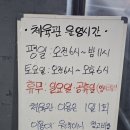 체육관 운영시간
평일 오전6시~밤11시
토요일: 오전6시~오후6시
휴무: 일요일, 공휴일
체육관 이용은 1일 1회